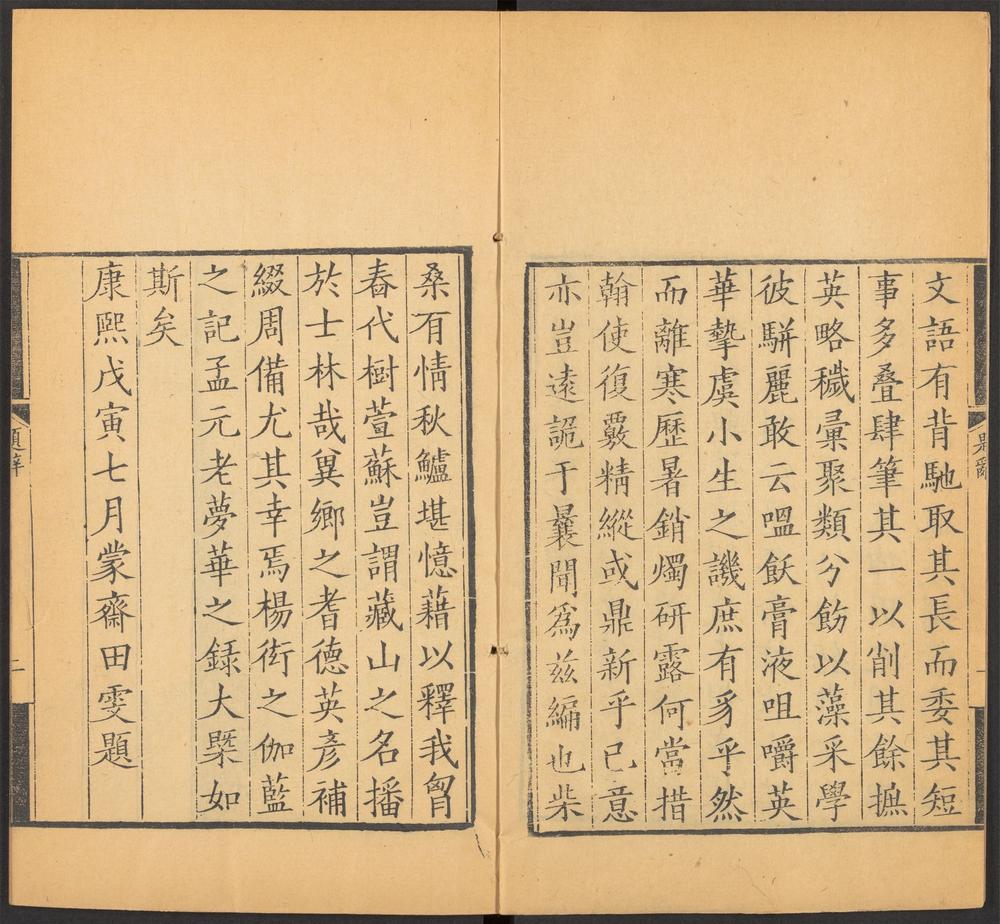 文語有背馳取其長而委其短
事多疊肆筆其一以削其餘摭
英略穢彙聚類分飭以藻采學
彼駢麗敢云嗢飫膏液咀嚼英
華摯虞小生之譏庶有豸乎然
而離寒歷暑銷燭研露何當措
翰使復覈精縱或鼎新乎己意
亦豈遠詭于曩聞爲兹編也柴
桑有情秋鱸堪憶藉以釋我胷
春代樹萱蘇豈謂藏山之名播
於士林哉兾鄉之耆德英彦補
綴周備尤其幸焉楊衒之伽藍
之記孟元老夢華之録大槩如
斯矣
康熙戊寅七月蒙齋田雯題
題辭
一
題辭
二